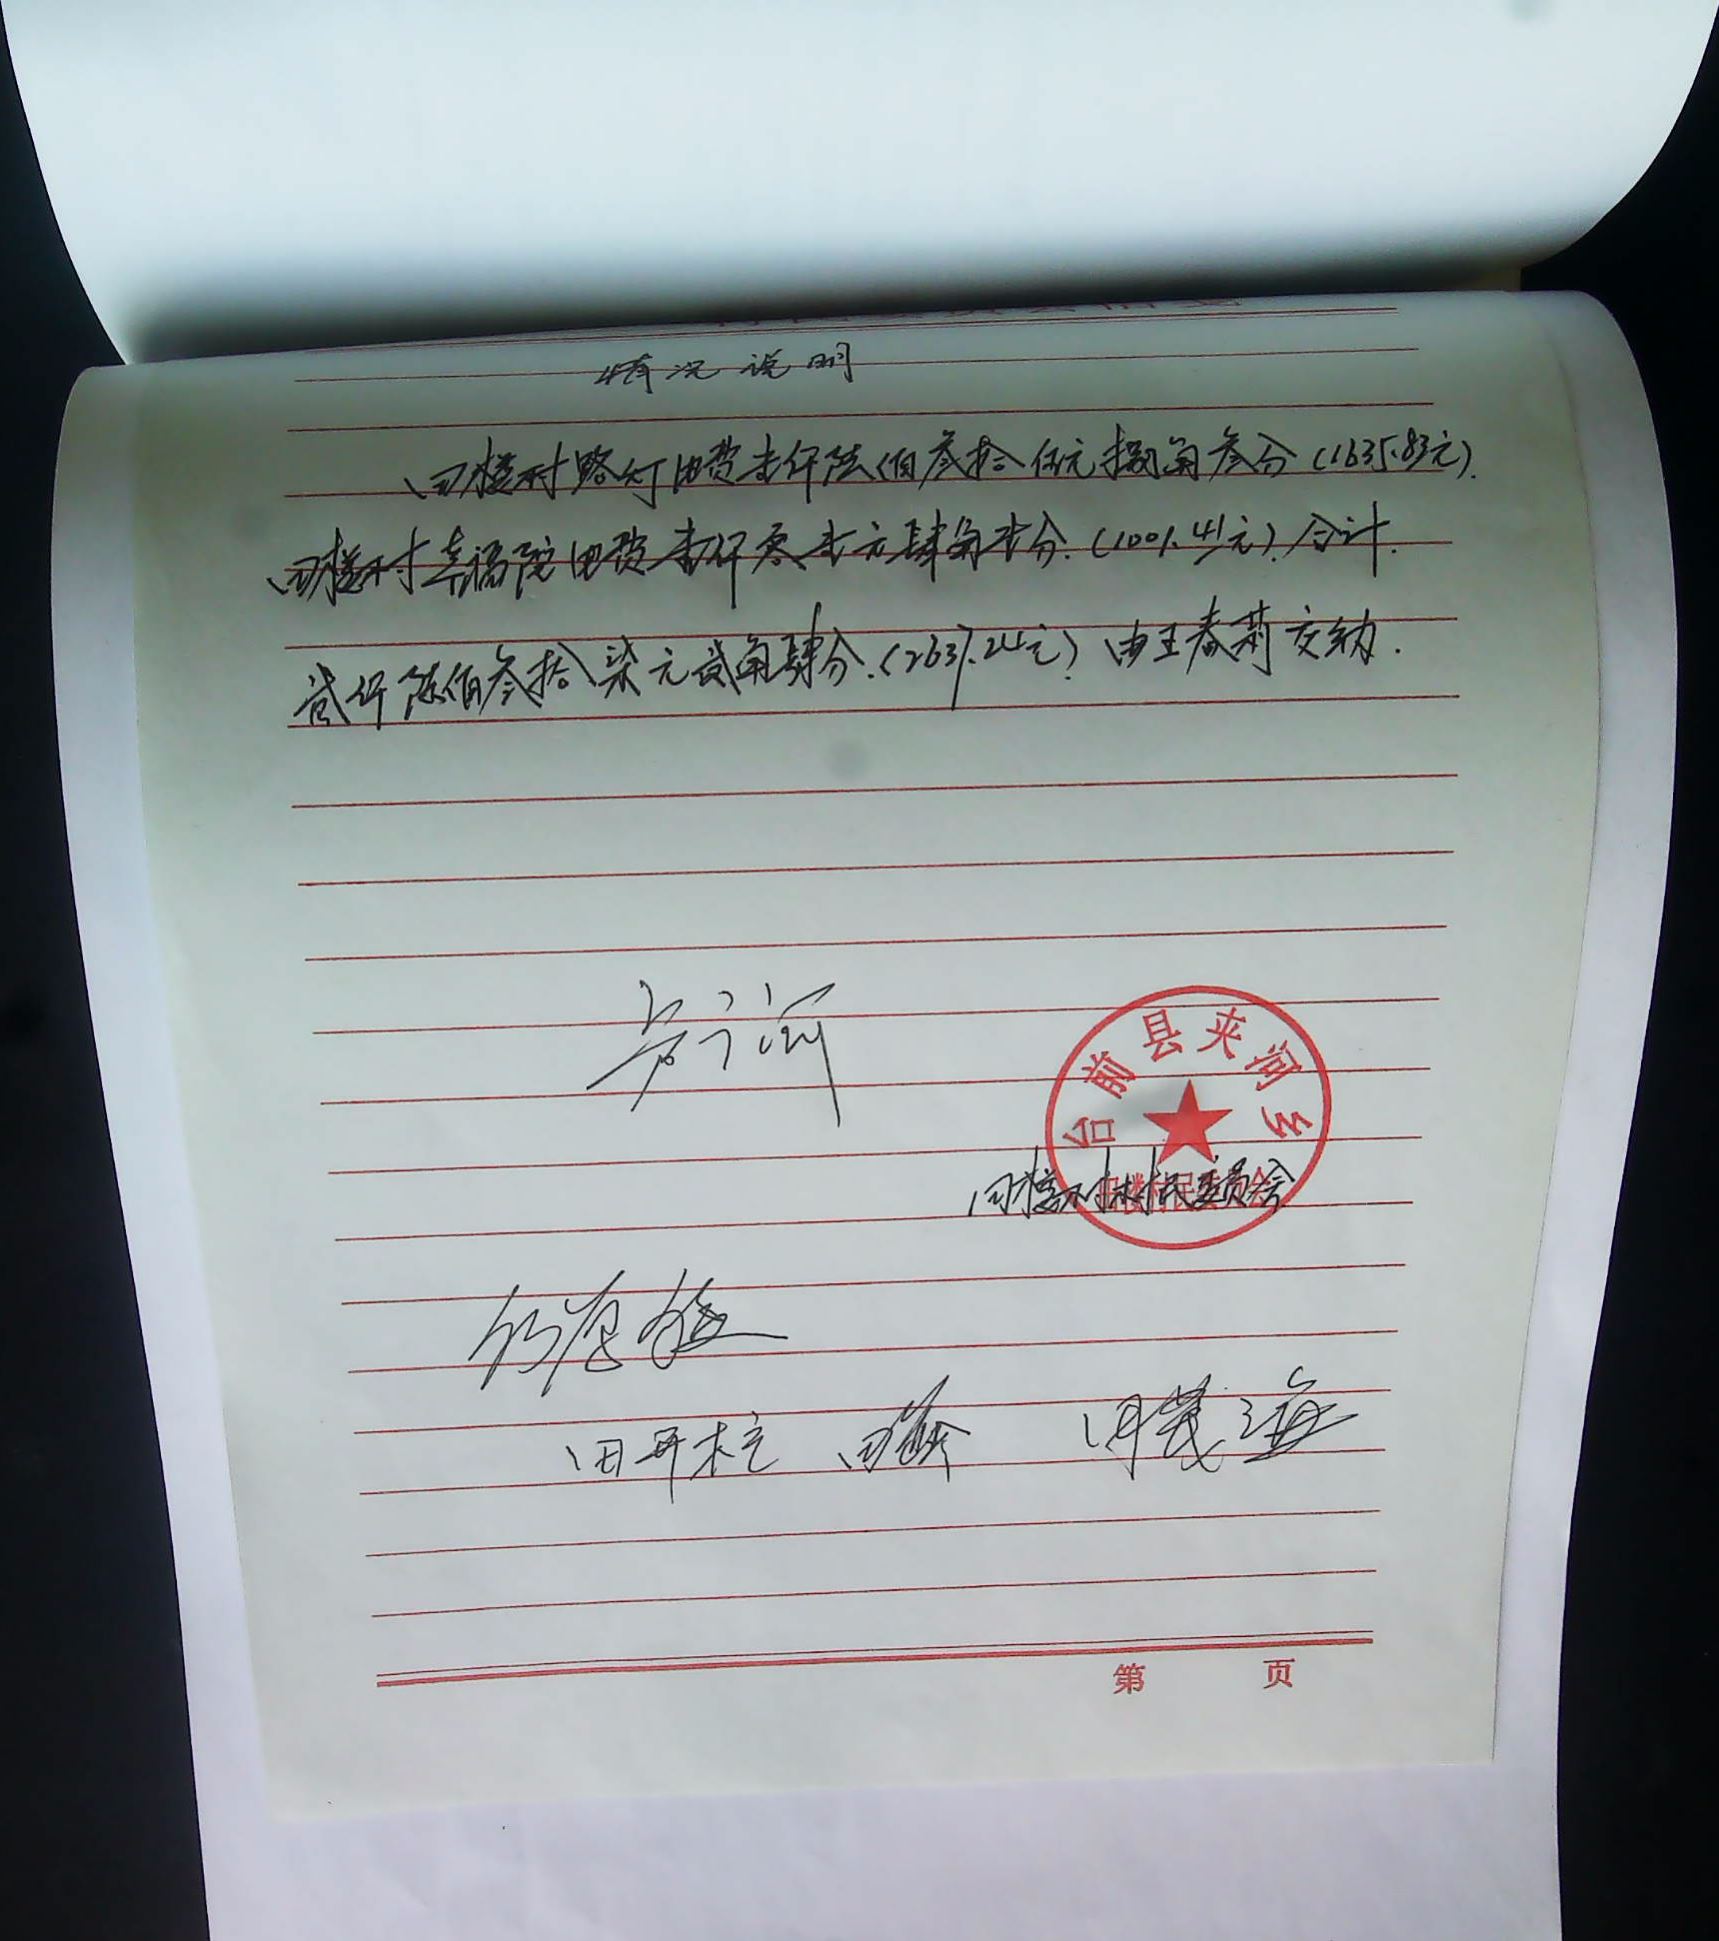 情况说明
田楼村路灯电费壹仟陆佰叁拾伍元捌角叁分(1635.83元).
田楼村幸福院电费壹仟零壹元肆角壹分.(1001.41元).合计.
贰仟陆佰叁拾柒元贰角肆分.(2637.24元).由王春莉交纳.
台前县夹河乡
田楼村村民委员会
田楼村村民委员会
田开柱
第 页